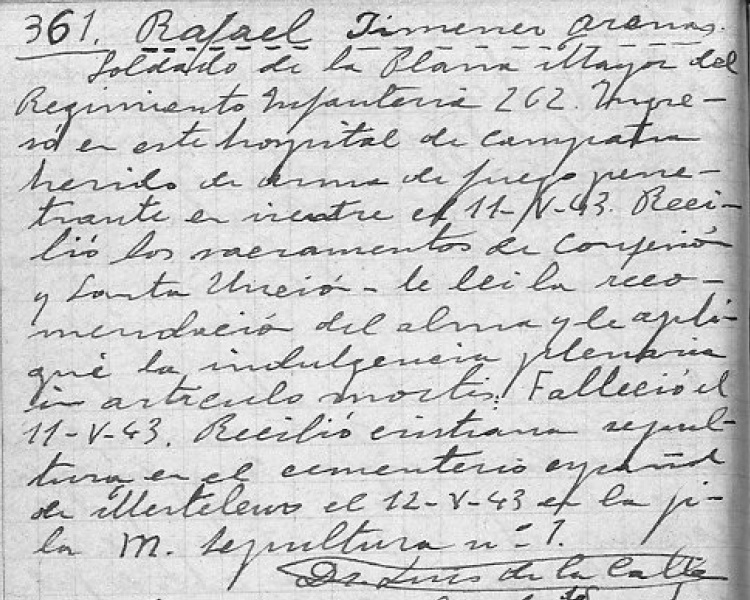 361. Rafael Jimenez Arenas.
Soldado de la Plana Mayor del
Regimiento Infanteria 262. Ingre-
só en este hospital de campaña
herido de arma de fuego pene-
trante en vientre el 11-V-43. Reci-
bió los sacramentos de Confesión
y Santa Unció - le lei la reco-
mendació del alma y le apli-
qué la indulgencia plenaria
in articulo mortis. Falleció el
11-V-43. Recibió cristiana sepul-
tura en el cementerio español
de Mestelewo el 12-V-43 en la fi-
la M. Sepultura nº 7.
Dr. Luis de la Calle